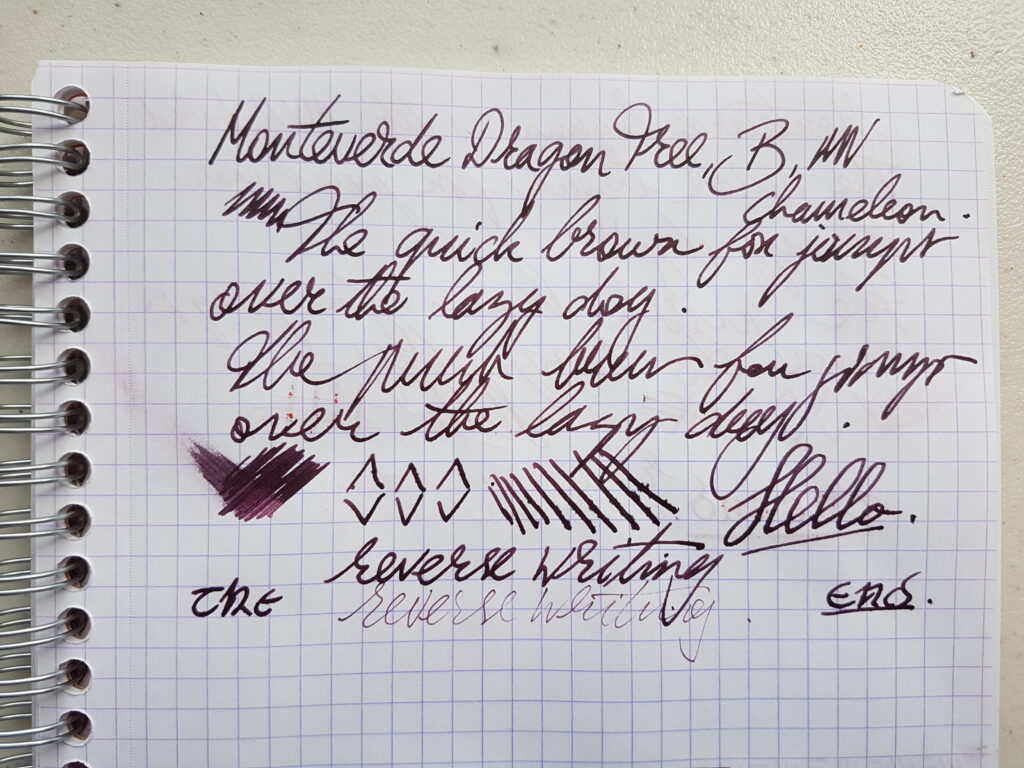 Monteverde Dragon Tree, B, HN
Chameleon.
The quick brown fox jumpt
over the lazy dog.
The quick brown fox jumpt
over the lazy dog.
Hello.
reverse writing
reverse writing
THE END.